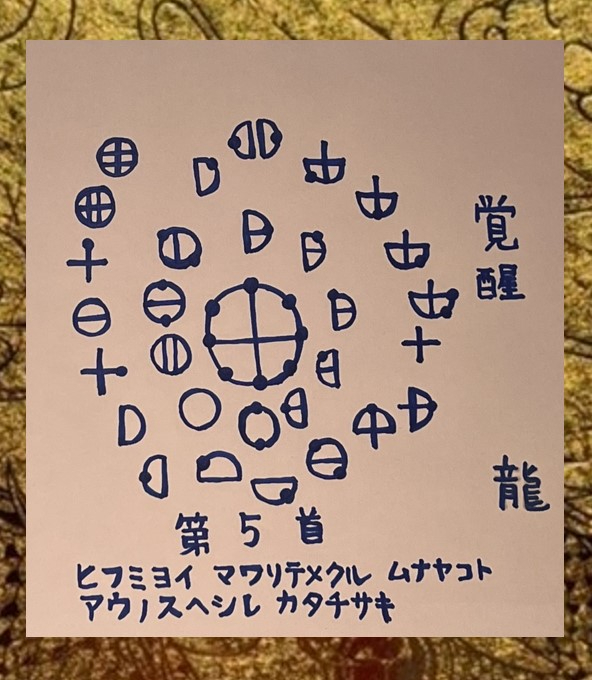 覚醒
龍
第5首
ヒフミヨイ マワリテメクル ムナヤコト
アウノスヘシレ カタチサキ